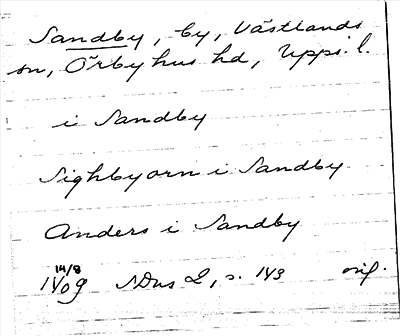 Sandby, by, Västlands
sn, Örbyhus hd, Upps. l.
i Sandby
Sighbyorn i Sandby
Anders i Sandby
14/8
1409 SDns 2, s. 143 orig.